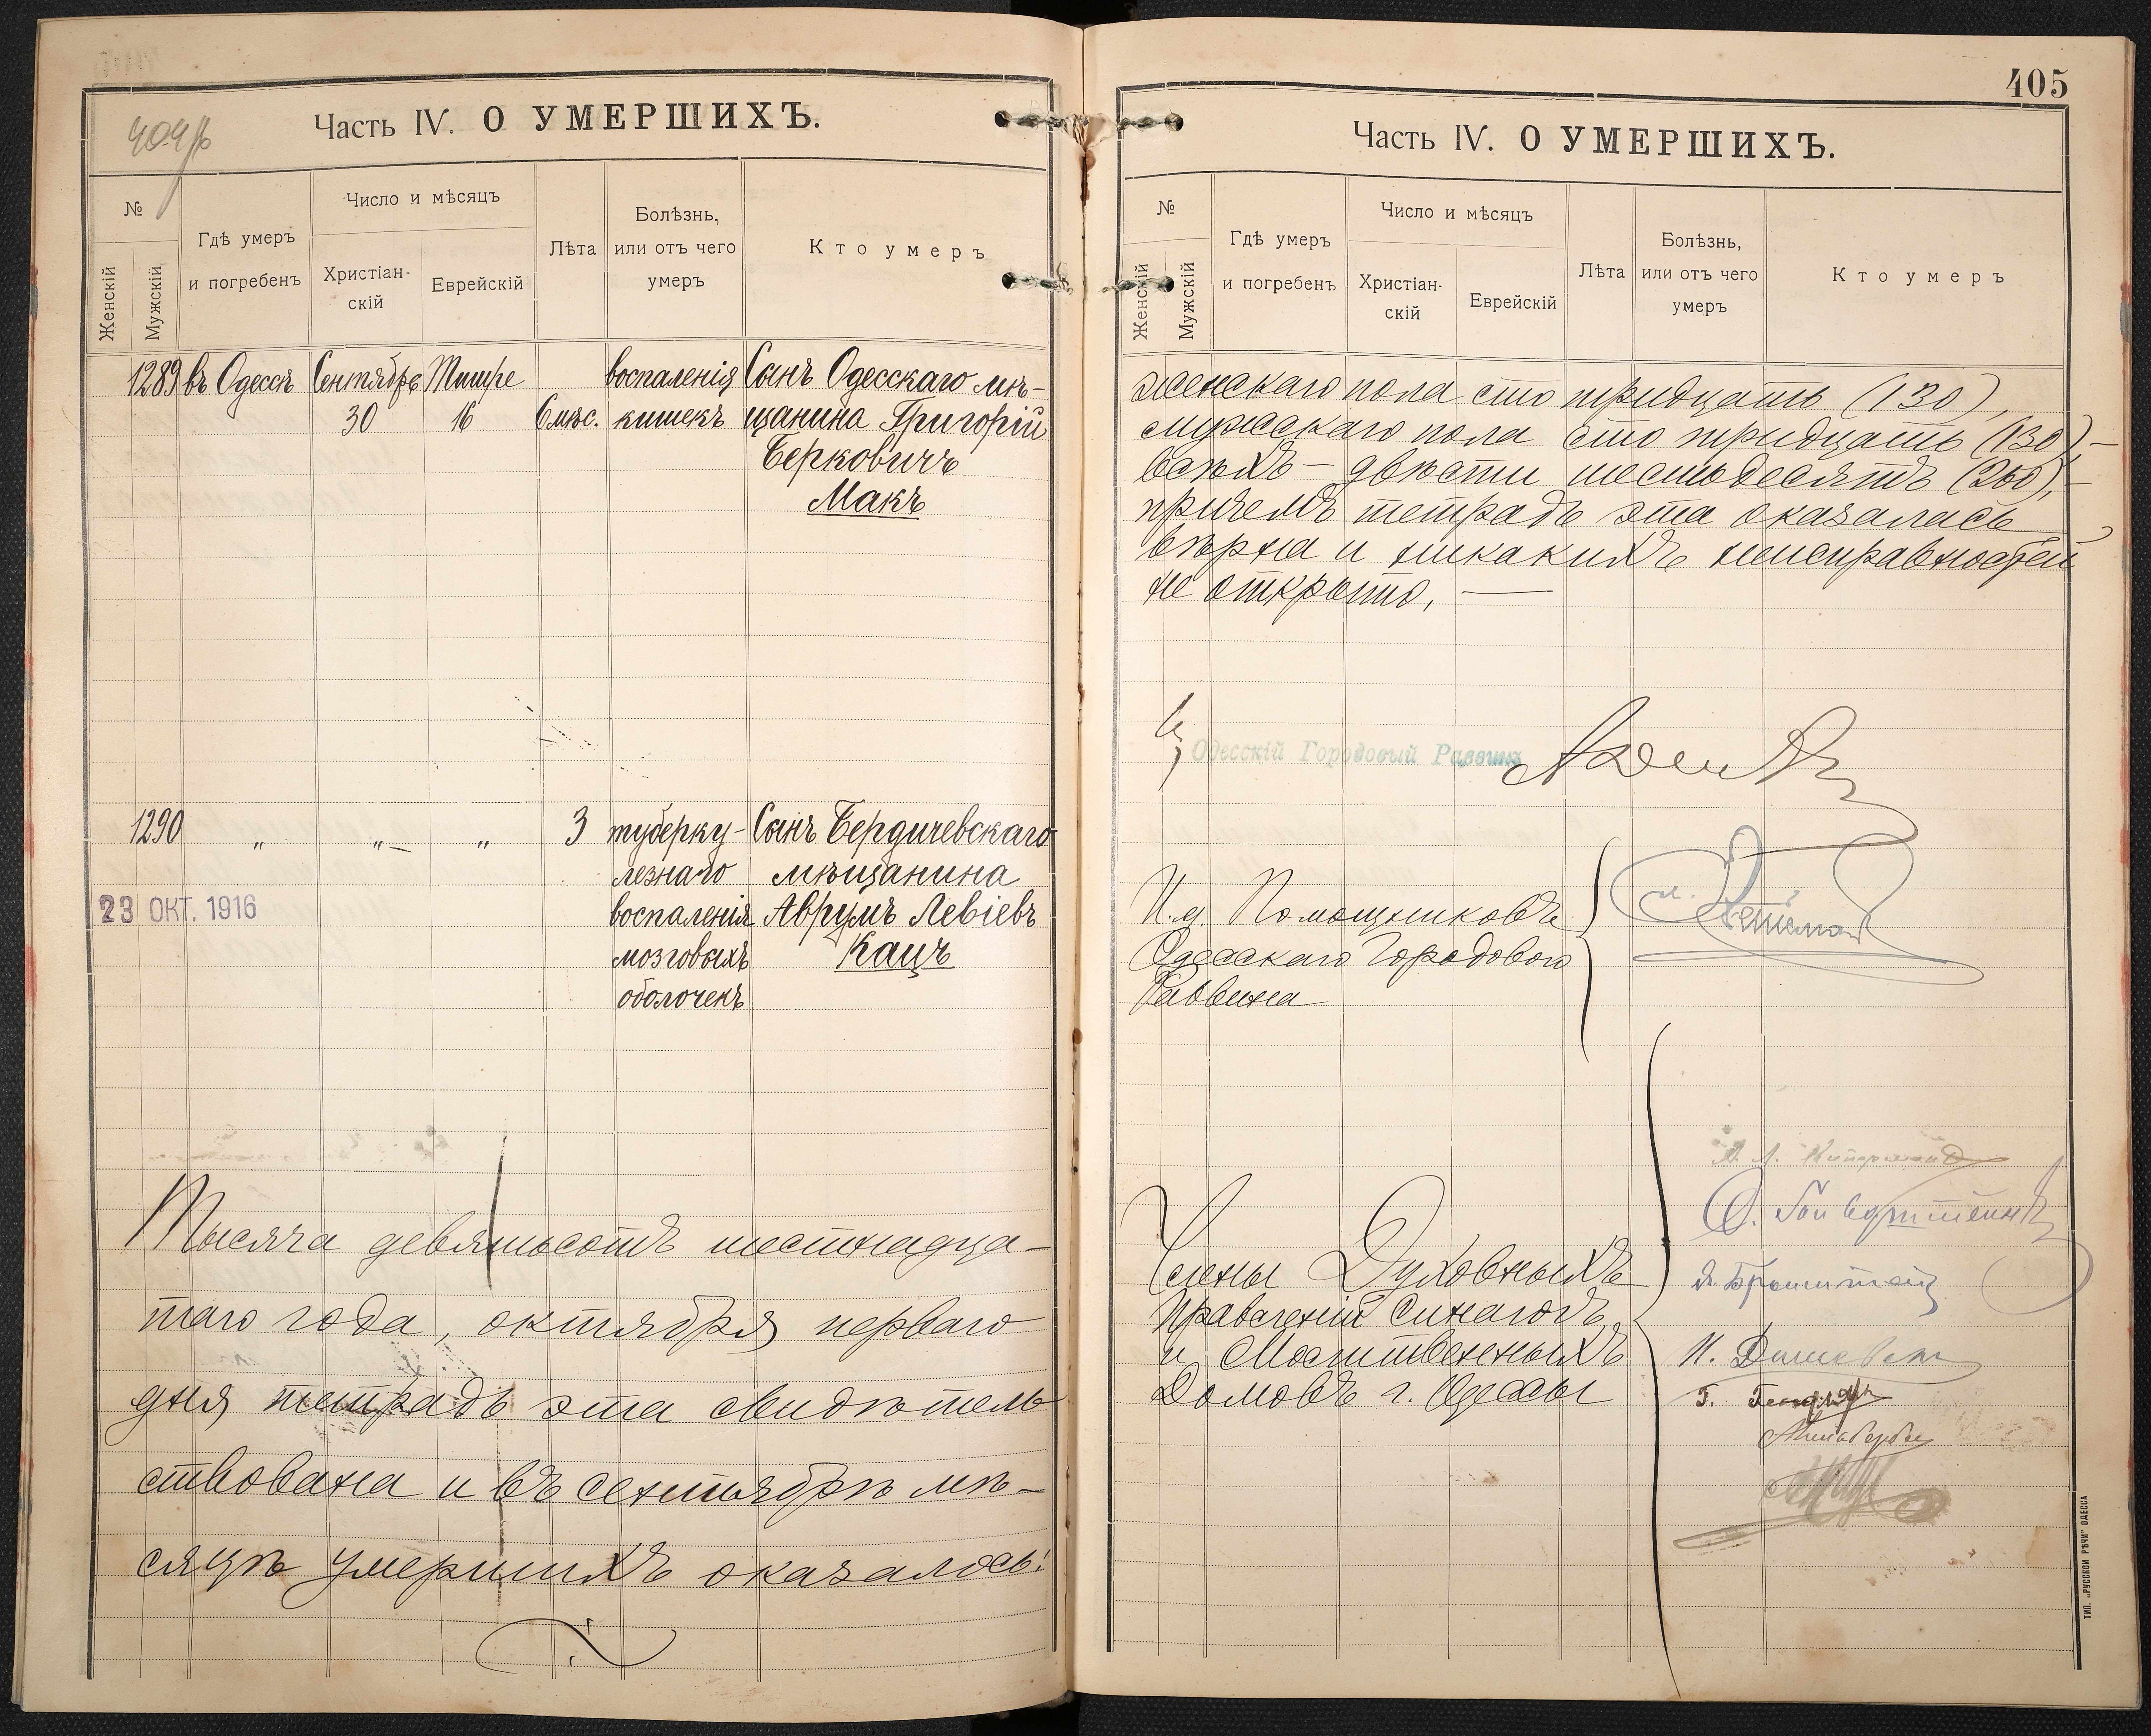 Часть IV. О УМЕРШИХЪ.
№
Женскій
Мужскій
Гдѣ умеръ
и погребенъ
Число и мѣсяцъ
Христіан-
скій
Еврейскій
Лѣта
Болѣзнь,
или отъ чего
умеръ
Кто умеръ
1289 въ Одессѣ Сентябрь Тишре воспаленія Сынъ Одесскаго мѣ-
30 16 6 мѣс. кишекъ щанина Григорій
Берковичъ
Макъ
1290 " "– " 3 туберку- Сынъ Бердичевскаго
лезнаго мѣщанина
23 ОКТ. 1916
воспаленія Аврумъ Левіевъ
мозговыхъ Кацъ
оболочекъ
Тысяча девятьсотъ шестнадца-
таго года, октября перваго
дня тетрадь эта свидѣтель
ствована и въ сентябрѣ мѣ-
сяцѣ умершихъ оказалось:
405
Часть IV. О УМЕРШИХЪ.
№
Женскій
Мужскій
Гдѣ умеръ
и погребенъ
Число и мѣсяцъ
Христіан-
скій
Еврейскій
Лѣта
Болѣзнь,
или отъ чего
умеръ
Кто умеръ
женскаго пола сто тридцать (130),
мужскаго пола сто тридцать (130),–
всѣхъ – двѣсти шестьдесятъ (260),–
причемъ тетрадь эта оказалась
вѣрна и никакихъ неисправностей
не открыто. —
Одесскій Городовый Раввинъ
И.д. Помощниковъ
Одесскаго Городового
Раввина
Члены Духовныхъ
Правленій Синагогъ
и Молитвенныхъ
Домовъ г. Одессы
ТИП. „РУССКОЙ РѢЧИ" ОДЕССА